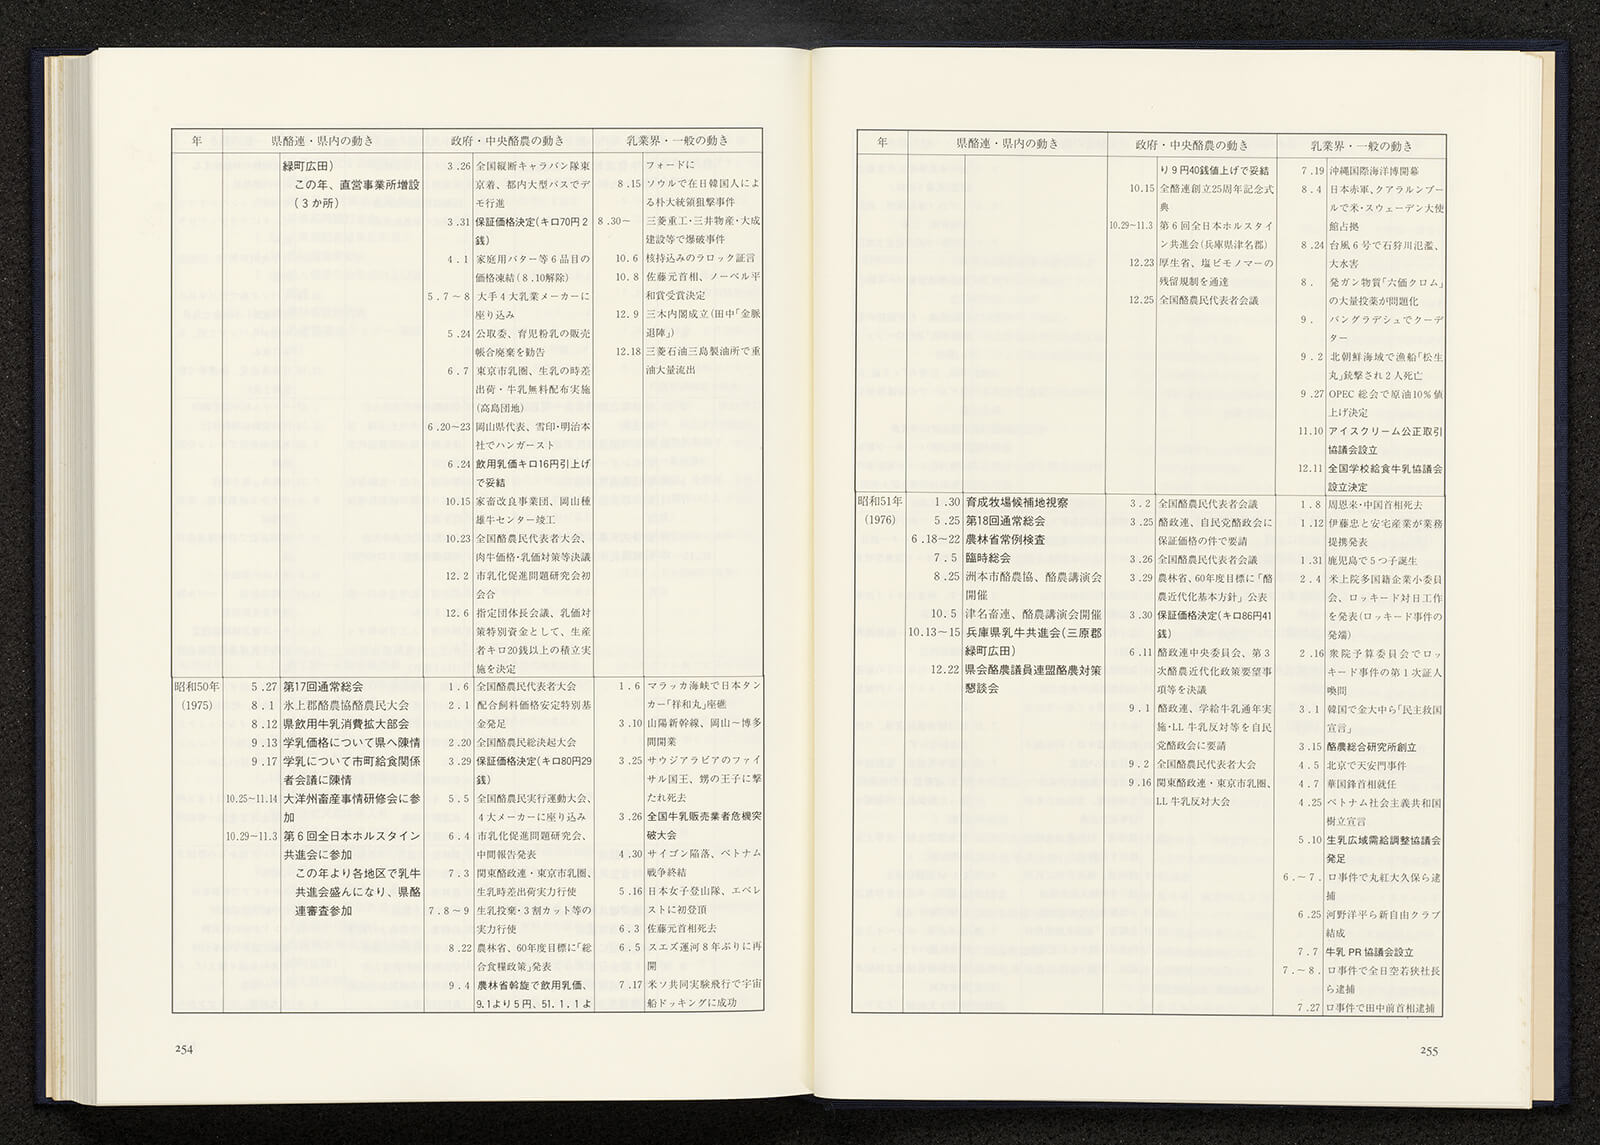 年
県酪連・県内の動き
政府・中央酪農の動き
乳業界・一般の動き
緑町広田)
この年、直営事業所増設
(3か所)
3.26 全国縦断キャラバン隊東
京着、都内大型バスでデ
モ行進
3.31 保証価格決定(キロ70円2
銭)
4.1 家庭用バター等6品目の
価格凍結(8.10解除)
5.7〜8 大手4大乳業メーカーに
座り込み
5.24 公取委、育児粉乳の販売
帳合廃棄を勧告
6.7 東京市乳圏、生乳の時差
出荷・牛乳無料配布実施
(高島団地)
6.20〜23 岡山県代表、雪印・明治本
社でハンガースト
6.24 飲用乳価キロ16円引上げ
で妥結
10.15 家畜改良事業団、岡山種
雄牛センター竣工
10.23 全国酪農民代表者大会、
肉牛価格・乳価対策等決議
12.2 市乳化促進問題研究会初
会合
12.6 指定団体長会議、乳価対
策特別資金として、生産
者キロ20銭以上の積立実
施を決定
フォードに
8.15 ソウルで在日韓国人によ
る朴大統領狙撃事件
8.30〜 三菱重工・三井物産・大成
建設等で爆破事件
10.6 核持込みのラロック証言
10.8 佐藤元首相、ノーベル平
和賞受賞決定
12.9 三木内閣成立(田中「金脈
退陣」)
12.18 三菱石油三島製油所で重
油大量流出
昭和50年
(1975)
5.27 第17回通常総会
8.1 氷上郡酪農協酪農民大会
8.12 県飲用牛乳消費拡大部会
9.13 学乳価格について県へ陳情
9.17 学乳について市町給食関係
者会議に陳情
10.25〜11.14 大洋州畜産事情研修会に参
加
10.29〜11.3 第6回全日本ホルスタイン
共進会に参加
この年より各地区で乳牛
共進会盛んになり、県酪
連審査参加
1.6 全国酪農民代表者大会
2.1 配合飼料価格安定特別基
金発足
2.20 全国酪農民総決起大会
3.29 保証価格決定(キロ80円29
銭)
5.5 全国酪農民実行運動大会、
4大メーカーに座り込み
6.4 市乳化促進問題研究会、
中間報告発表
7.3 関東酪政連・東京市乳圏、
生乳時差出荷実力行使
7.8〜9 生乳投棄・3割カット等の
実力行使
8.22 農林省、60年度目標に「総
合食糧政策」発表
9.4 農林省斡旋で飲用乳価、
9.1より5円、51.1.1よ
1.6 マラッカ海峡で日本タン
カー「祥和丸」座礁
3.10 山陽新幹線、岡山〜博多
間開業
3.25 サウジアラビアのファイ
サル国王、甥の王子に撃
たれ死去
3.26 全国牛乳販売業者危機突
破大会
4.30 サイゴン陥落、ベトナム
戦争終結
5.16 日本女子登山隊、エベレ
ストに初登頂
6.3 佐藤元首相死去
6.5 スエズ運河8年ぶりに再
開
7.17 米ソ共同実験飛行で宇宙
船ドッキングに成功
254
年
県酪連・県内の動き
政府・中央酪農の動き
乳業界・一般の動き
り9円40銭値上げで妥結
10.15 全酪連創立25周年記念式
典
10.29〜11.3 第6回全日本ホルスタイ
ン共進会(兵庫県津名郡)
12.23 厚生省、塩ビモノマーの
残留規制を通達
12.25 全国酪農民代表者会議
7.19 沖縄国際海洋博開幕
8.4 日本赤軍、クアラルンプー
ルで米・スウェーデン大使
館占拠
8.24 台風6号で石狩川氾濫、
大水害
8. 発ガン物質「六価クロム」
の大量投棄が問題化
9. バングラデシュでクーデ
ター
9.2 北朝鮮海域で漁船「松生
丸」銃撃され2人死亡
9.27 OPEC総会で原油10%値
上げ決定
11.10 アイスクリーム公正取引
協議会設立
12.11 全国学校給食牛乳協議会
設立決定
昭和51年
(1976)
1.30 育成牧場候補地視察
5.25 第18回通常総会
6.18〜22 農林省常例検査
7.5 臨時総会
8.25 洲本市酪農協、酪農講演会
開催
10.5 津名畜連、酪農講演会開催
10.13〜15 兵庫県乳牛共進会(三原郡
緑町広田)
12.22 県会酪農議員連盟酪農対策
懇談会
3.2 全国酪農民代表者会議
3.25 酪政連、自民党酪政会に
保証価格の件で要請
3.26 全国酪農民代表者会議
3.29 農林省、60年度目標に「酪
農近代化基本方針」公表
3.30 保証価格決定(キロ86円41
銭)
6.11 酪政連中央委員会、第3
次酪農近代化政策要望事
項等を決議
9.1 酪政連、学給牛乳通年実
施・LL牛乳反対等を自民
党酪政会に要請
9.2 全国酪農民代表者大会
9.16 関東酪政連・東京市乳圏、
LL牛乳反対大会
1.8 周恩来・中国首相死去
1.12 伊藤忠と安宅産業が業務
提携発表
1.31 鹿児島で5つ子誕生
2.4 米上院多国籍企業小委員
会、ロッキード対日工作
を発表(ロッキード事件の
発端)
2.16 衆院予算委員会でロッ
キード事件の第1次証人
喚問
3.1 韓国で金大中ら「民主救国
宣言」
3.15 酪農総合研究所創立
4.5 北京で天安門事件
4.7 華国鋒首相就任
4.25 ベトナム社会主義共和国
樹立宣言
5.10 生乳広域需給調整協議会
発足
6.〜7. ロ事件で丸紅大久保ら逮
捕
6.25 河野洋平ら新自由クラブ
結成
7.7 牛乳PR協議会設立
7.〜8. ロ事件で全日空若狭社長
ら逮捕
7.27 ロ事件で田中前首相逮捕
255